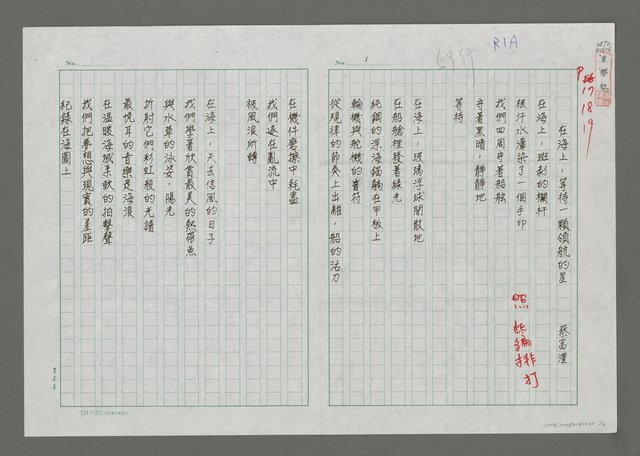 No. 1
69行
R1A
P
17
18
19
在海上，等待一顆領航的星
蔡富澧
在海上，斑剝的欄杆
被汗水濡染了一個手印
我們四周守著船舷
守著黑暗，靜靜地
等待
照此編排打
在海上，玻璃浮球閒散地
在船艙裡發著綠光
純鋼的深海錨躺在甲板上
輪機與舵機的聲符
從規律的節奏上出離，船的活力
No.
在機件磨擦中耗盡
我們還在亂流中
被風浪所轉
在海上，失去信風的日子
我們學著欣賞最美的熱帶魚
與水草的泳姿，陽光
折射它們彩虹般的光譜
最悅耳的音樂是海浪
在溫暖海域柔軟的拍擊聲
我們把夢想與現實的差距
紀錄在海圖上
(24×25)